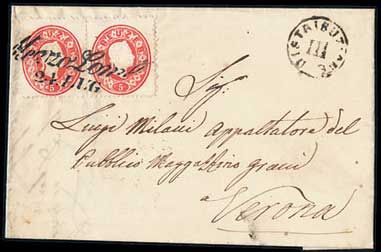 Mezzo Lom
24 LUG
5 5
DISTRIBUZ
III
Sig.
Luigi Milani Appaltatore del
Pubblico Magazzino grani
a
Verona